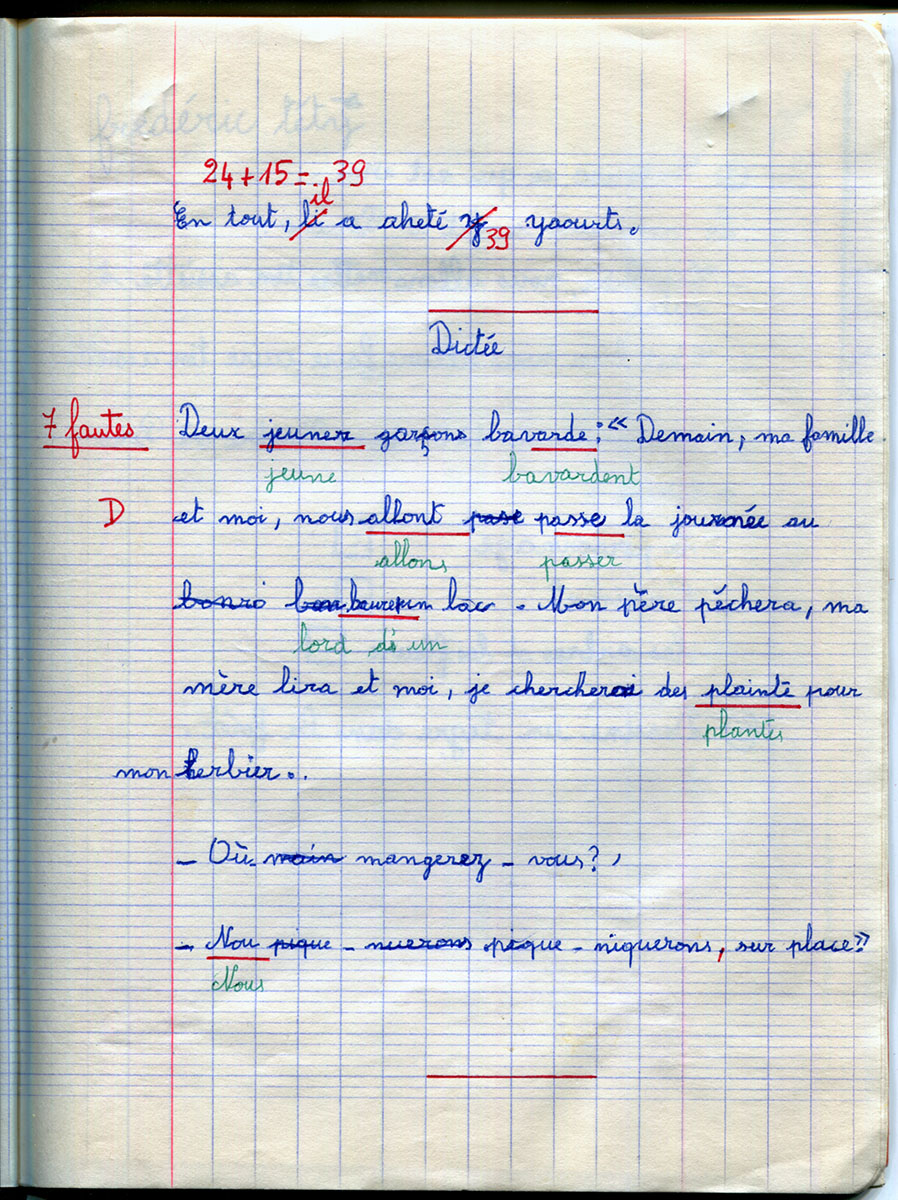 24+15=39
il
En tout, li a aheté yaourts.
39
Dictée
7 fautes Deux jeunes garçons bavarde : « Demain, ma famille
jeune bavardent
D et moi, nous allont pase passe la journée au
allons passer
lac. Mon père pêchera, ma
lord d'un
mère lira et moi, je chercherai des plainte pour
plantes
mon herbier..
- Où main mangerez-vous?
- Nou pique-nuerons pique-niquerons, sur place »
Nous